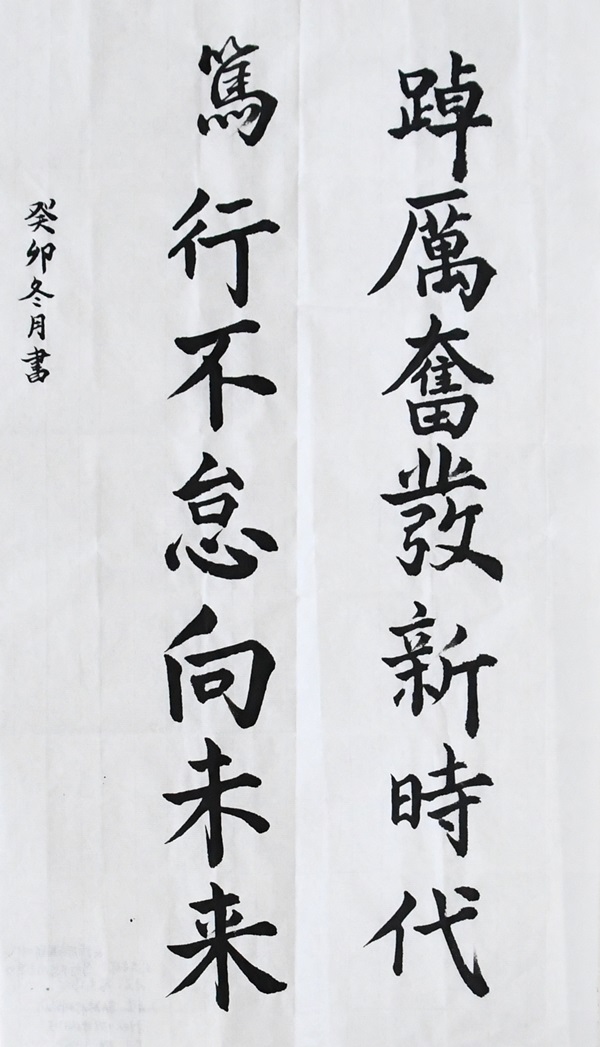 踔厲奮發新時代
篤行不怠向未来
癸卯冬月書